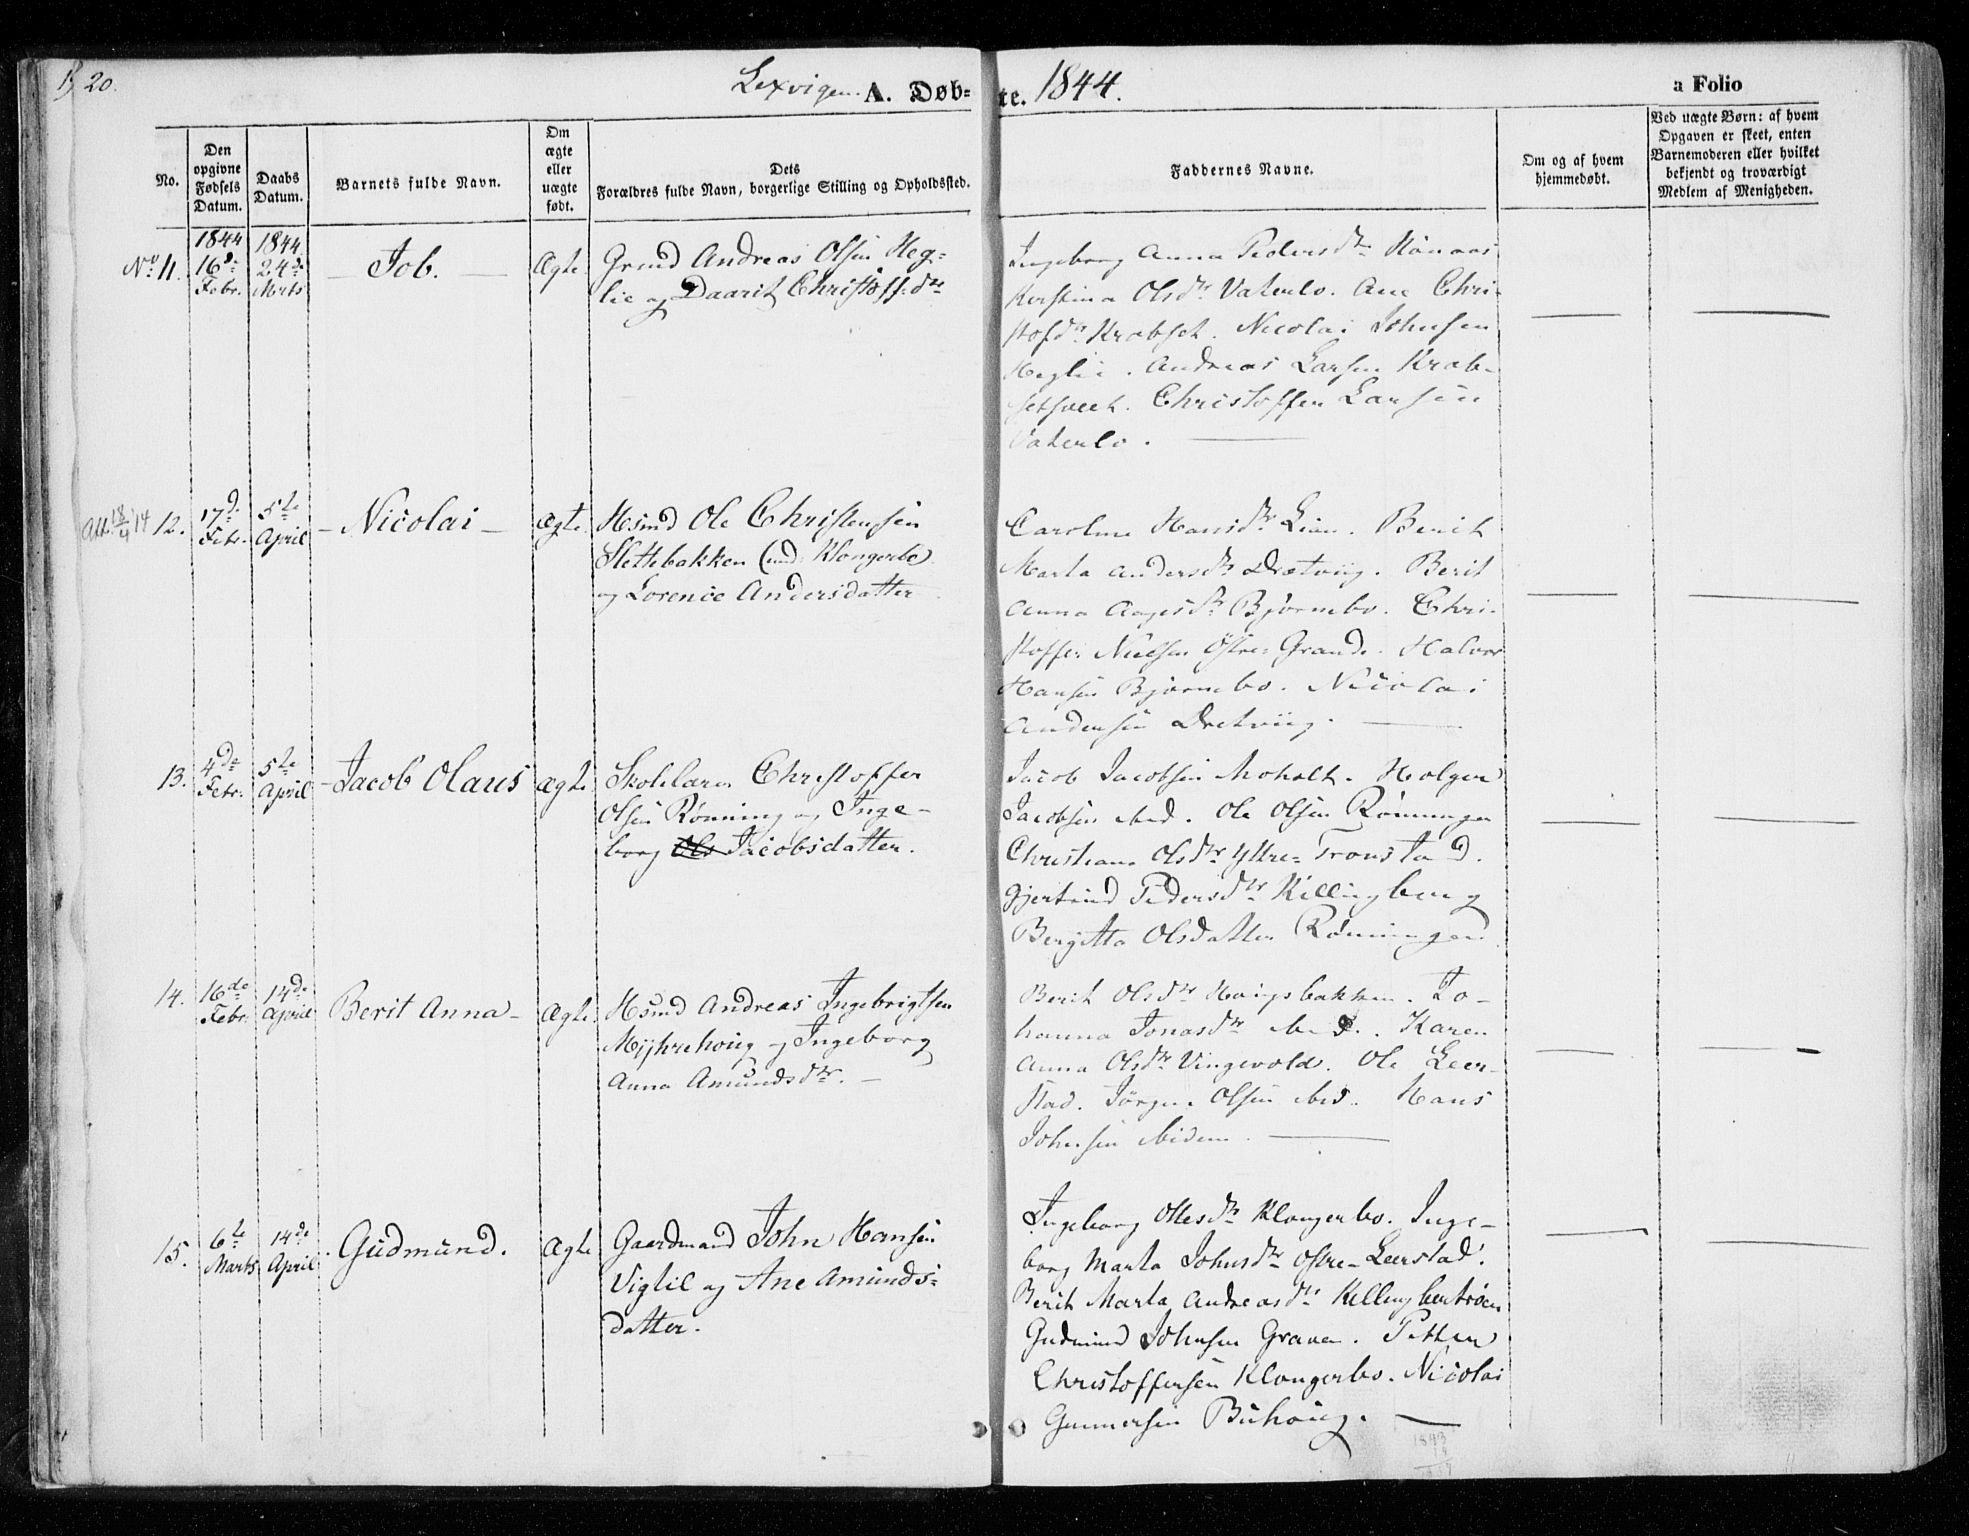 20.
Lexvigen. A. Døb= te. 1844. a Folio
No.
Den opgivne Fødsels Datum.
Daabs Datum.
Barnets fulde Navn.
Om ægte eller uægte født.
Dets Forældres fulde Navn, borgerlige Stilling og Opholdssted.
Faddernes Navne.
Om og af hvem hjemmedøbt.
Ved uægte Børn: af hvem Opgaven er skeet, enten Barnemoderen eller hvilket bekjendt og troværdigt Medlem af Menigheden.
No 11.
1844 16de Febr.
1844 24de Marts
Job.
Ægte
Grmd Andreas Olsen Heg=
lie og Daarit Christoff.dtr
Ingeborg Anna Pedersdtr
Kerstina Olsdtr Vaterlo. Ane Chri-
stofdtr Krabset. Nicolai Johnsen
Heglie. Andreas Larsen Krab-
setsveet. Christoffer Larsen
Vaterlo.
Att. 18/4 '14
12.
17de Febr.
5te April
Nicolai
Ægte
Hsmd Ole Christensen
Slettebakken (und: Klongerbo)
og Lorence Andersdatter
Caroline Hansdtr Lien. Berit
Marta Andersdtr Drætviig. Berit
Anna Aagesdtr Bjørnebo. Chri-
stoffer Nielsen Østre-Grande. Halvor
Hansen Bjørnebo. Nicolai
Andersen Dretviig.
13.
4de Febr.
5te April
Jacob Olaus
Ægte
Skolelærer Christoffer
Olsen Rønning og Inge-
borg Ols Jacobsdatter.
Jacob Jacobsen Moholt. Holger
Jacobsen ibid. Ole Olsen Rønningen
Christiana Olsdtr Yttre-Tronstad.
Gjertrud Pedersdtr Killingberg
Bergitta Olsdatter Rønningen
14.
16de Febr.
14de April
Berit Anna
Ægte
Hsmd Andreas Ingebrigtsen
Myhrehoug og Ingeborg
Anna Amundsdtr.
Berit Olsdtr Hougsbakken. Jo-
hanna Jonasdtr ibid. Karen
Anna Olsdtr Vingevold. Ole Leer-
stad. Jørgen Olsen ibid. Hans
Johnsen ibidem.
15.
6te Marts
14de April
Gudmund.
Ægte
Gaardmand John Hansen
Vigtil og Ane Amunds=
datter.
Ingeborg Ollesdtr Klongerbo. Inge-
borg Marta Johnsdtr Østre-Leerstad.
Berit Marta Andreasdtr Killingbertrøen
Gudmund Johnsen Graven. Petter
Christoffersen Klongerbo. Nicolai
Gunnersen Buhoug.
1843